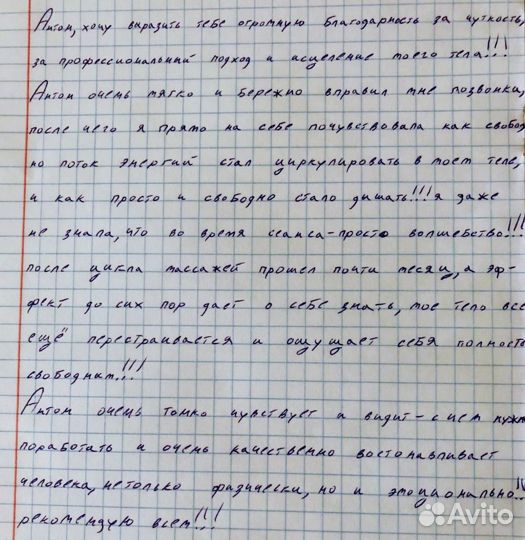 Антон, хочу выразить тебе огромную благодарность за чуткость,
за профессиональный подход и исцеление моего тела!!!
Антон очень мягко и бережно вправил мне позвонки,
после чего я прямо на себе почувствовала как свобод
но поток энергий стал циркулировать в моем теле,
и как просто и свободно стало дышать!!! я даже
не знала, что во время сеанса - просто волшебство!!!
после цикла массажей прошел почти месяц, а эф-
фект до сих пор дает о себе знать, мое тело все
ещё перестраивается и ощущает себя полность
свободным!!!
Антон очень тонко чувствует и видит - с чем нужн
поработать и очень качественно востонавливает
человека, не только физически, но и эмоционально..!!
рекомендую всем!!!
Avito